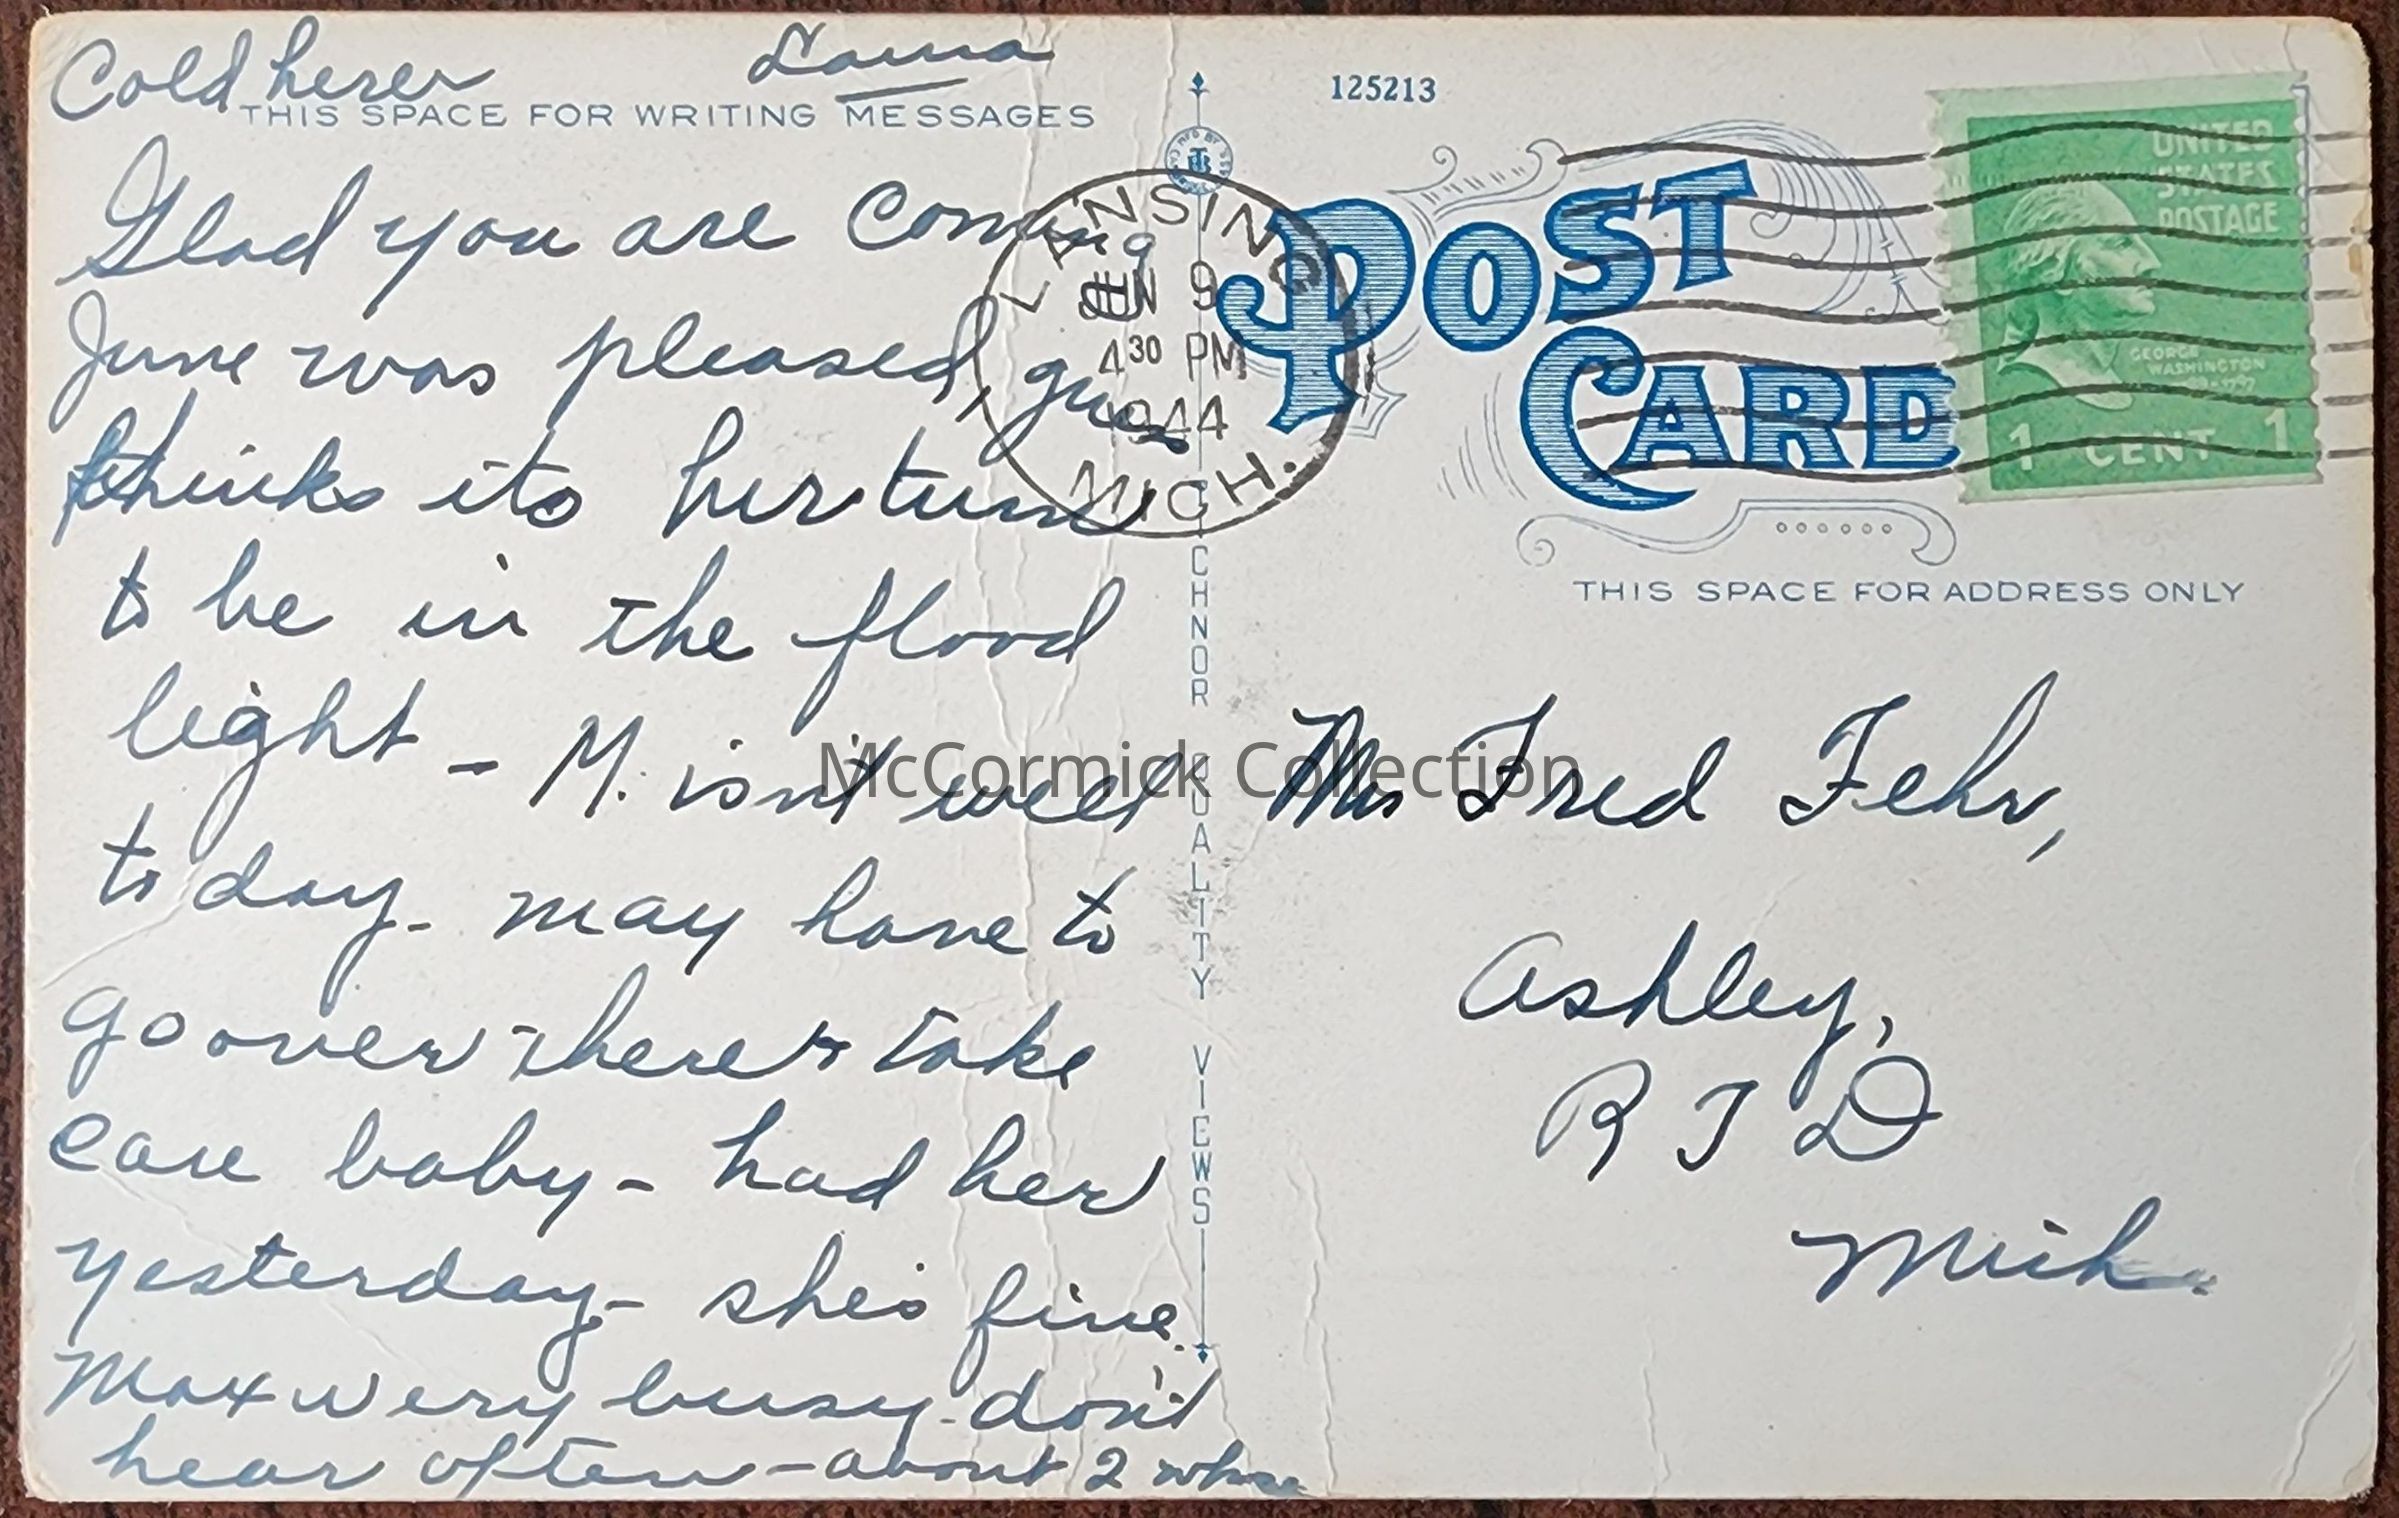 Cold here
THIS SPACE FOR WRITING MESSAGES
Glad you are coming
June was pleased, gues
thinks its her turn
to be in the flood
light - M. isn't well
to day - may have to
go over there & take
care baby - had her
yesterday - she's fine.
Max very busy - don't
hear often - about 2 wks
125213
LANSING
JUN 9
4 30 PM
1944
MICH.
POST
CARD
UNITED
STATES
POSTAGE
GEORGE
WASHINGTON
1 CENT 1
THIS SPACE FOR ADDRESS ONLY
TICHNOR QUALITY VIEWS
Mrs Fred Fehr,
Ashley,
R F D
Mich.
McCormick Collection